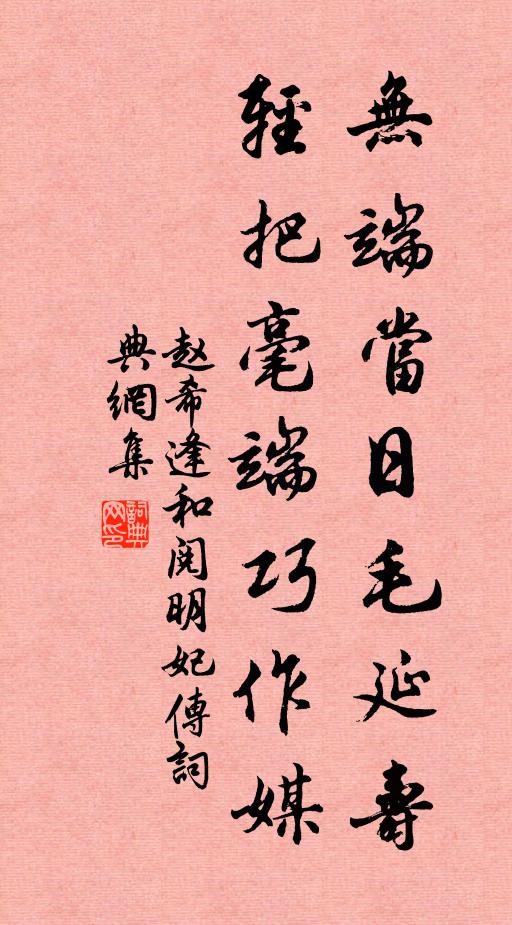 無端當日毛延壽
輕把毫端巧作媒
赵希逢和閱明妃傳詞
典網集
詞典网印